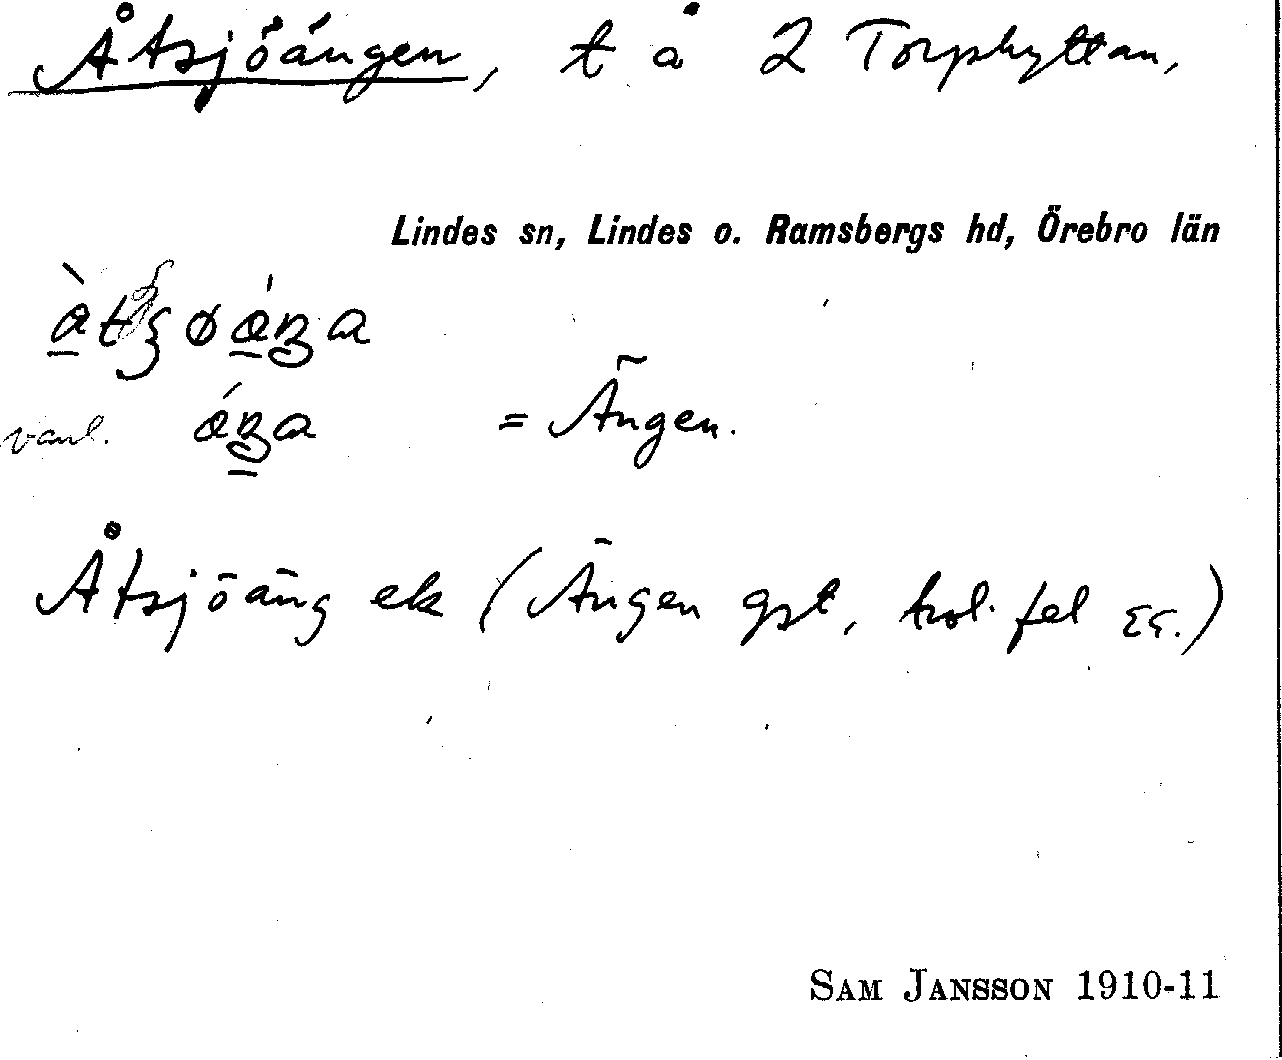 Åtsjöängen, t å 2 Torphyttan,
Lindes sn, Lindes o. Ramsbergs hd, Örebro län
vanl. = Ängen.
Åtsjöäng ek (Ängen gst, trol. fel
SAM JANSSON 1910-11